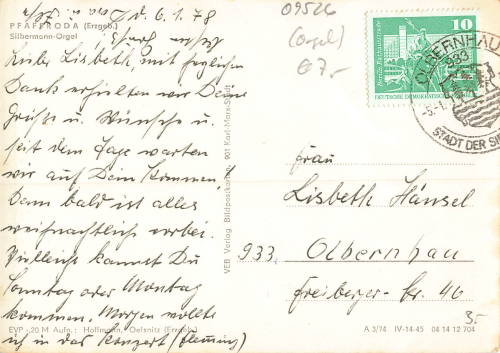 PFAFFRODA (Erzgeb.)
Silbermann-Orgel
d. 6.1.78
Liebe Lisbeth, mit fröhlichem
Dank erhielten wir Deine
Grüße u. Wünsche u.
seit dem Tage warten
wir auf Dein Kommen!
Denn bald ist alles
weihnachtliche vorbei.
Vielleicht kannst Du
Sonntag oder Montag
kommen. Morgen wollte
ich in das Konzert (Flemming)
EVP -20 M Aufn.: Hoffmann, Oelsnitz (Erzgeb.)
VEB Verlag Bildpostkarten, 901 Karl-Marx-Stadt
09526
(Orgel)
€ 7,-
10
DEUTSCHE DEMOKRATISCHE
OLBERNHAU
933
STADT DER
Frau
Lisbeth Hänsel
933. Olbernhau
Freiberger-Str. 46
3.-
A 3/74 IV-14-45 04 14 12 704